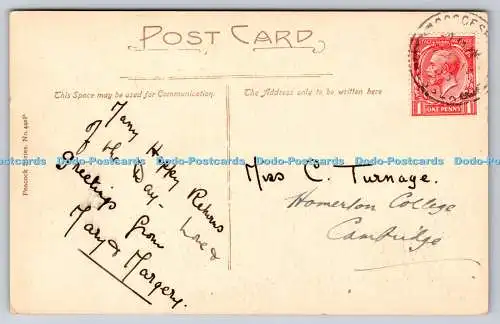 POST CARD
This Space may be used for Communication.
The Address only to be written here
Peacock Series. No. 448P
ONE PENNY
Many Happy Returns
of the Day - Love &
Greetings from
Mary & Margery.
Miss C. Turnage.
Homerton College
Cambridge
Dodo-Postcards Dodo-Postcards Dodo-Postcards Dodo-Postcards Dodo-Postcards Dodo-Postcards